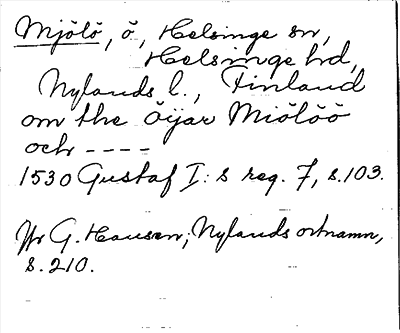 Mjölö, ö, Helsinge sn,
Helsinge hd,
Nylands l., Finland
om the öijar Miölöö
och ----
1530 Gustaf I:s reg. 7, s.103.
Jfr G. Hausen, Nylands ortnamn,
s.210.